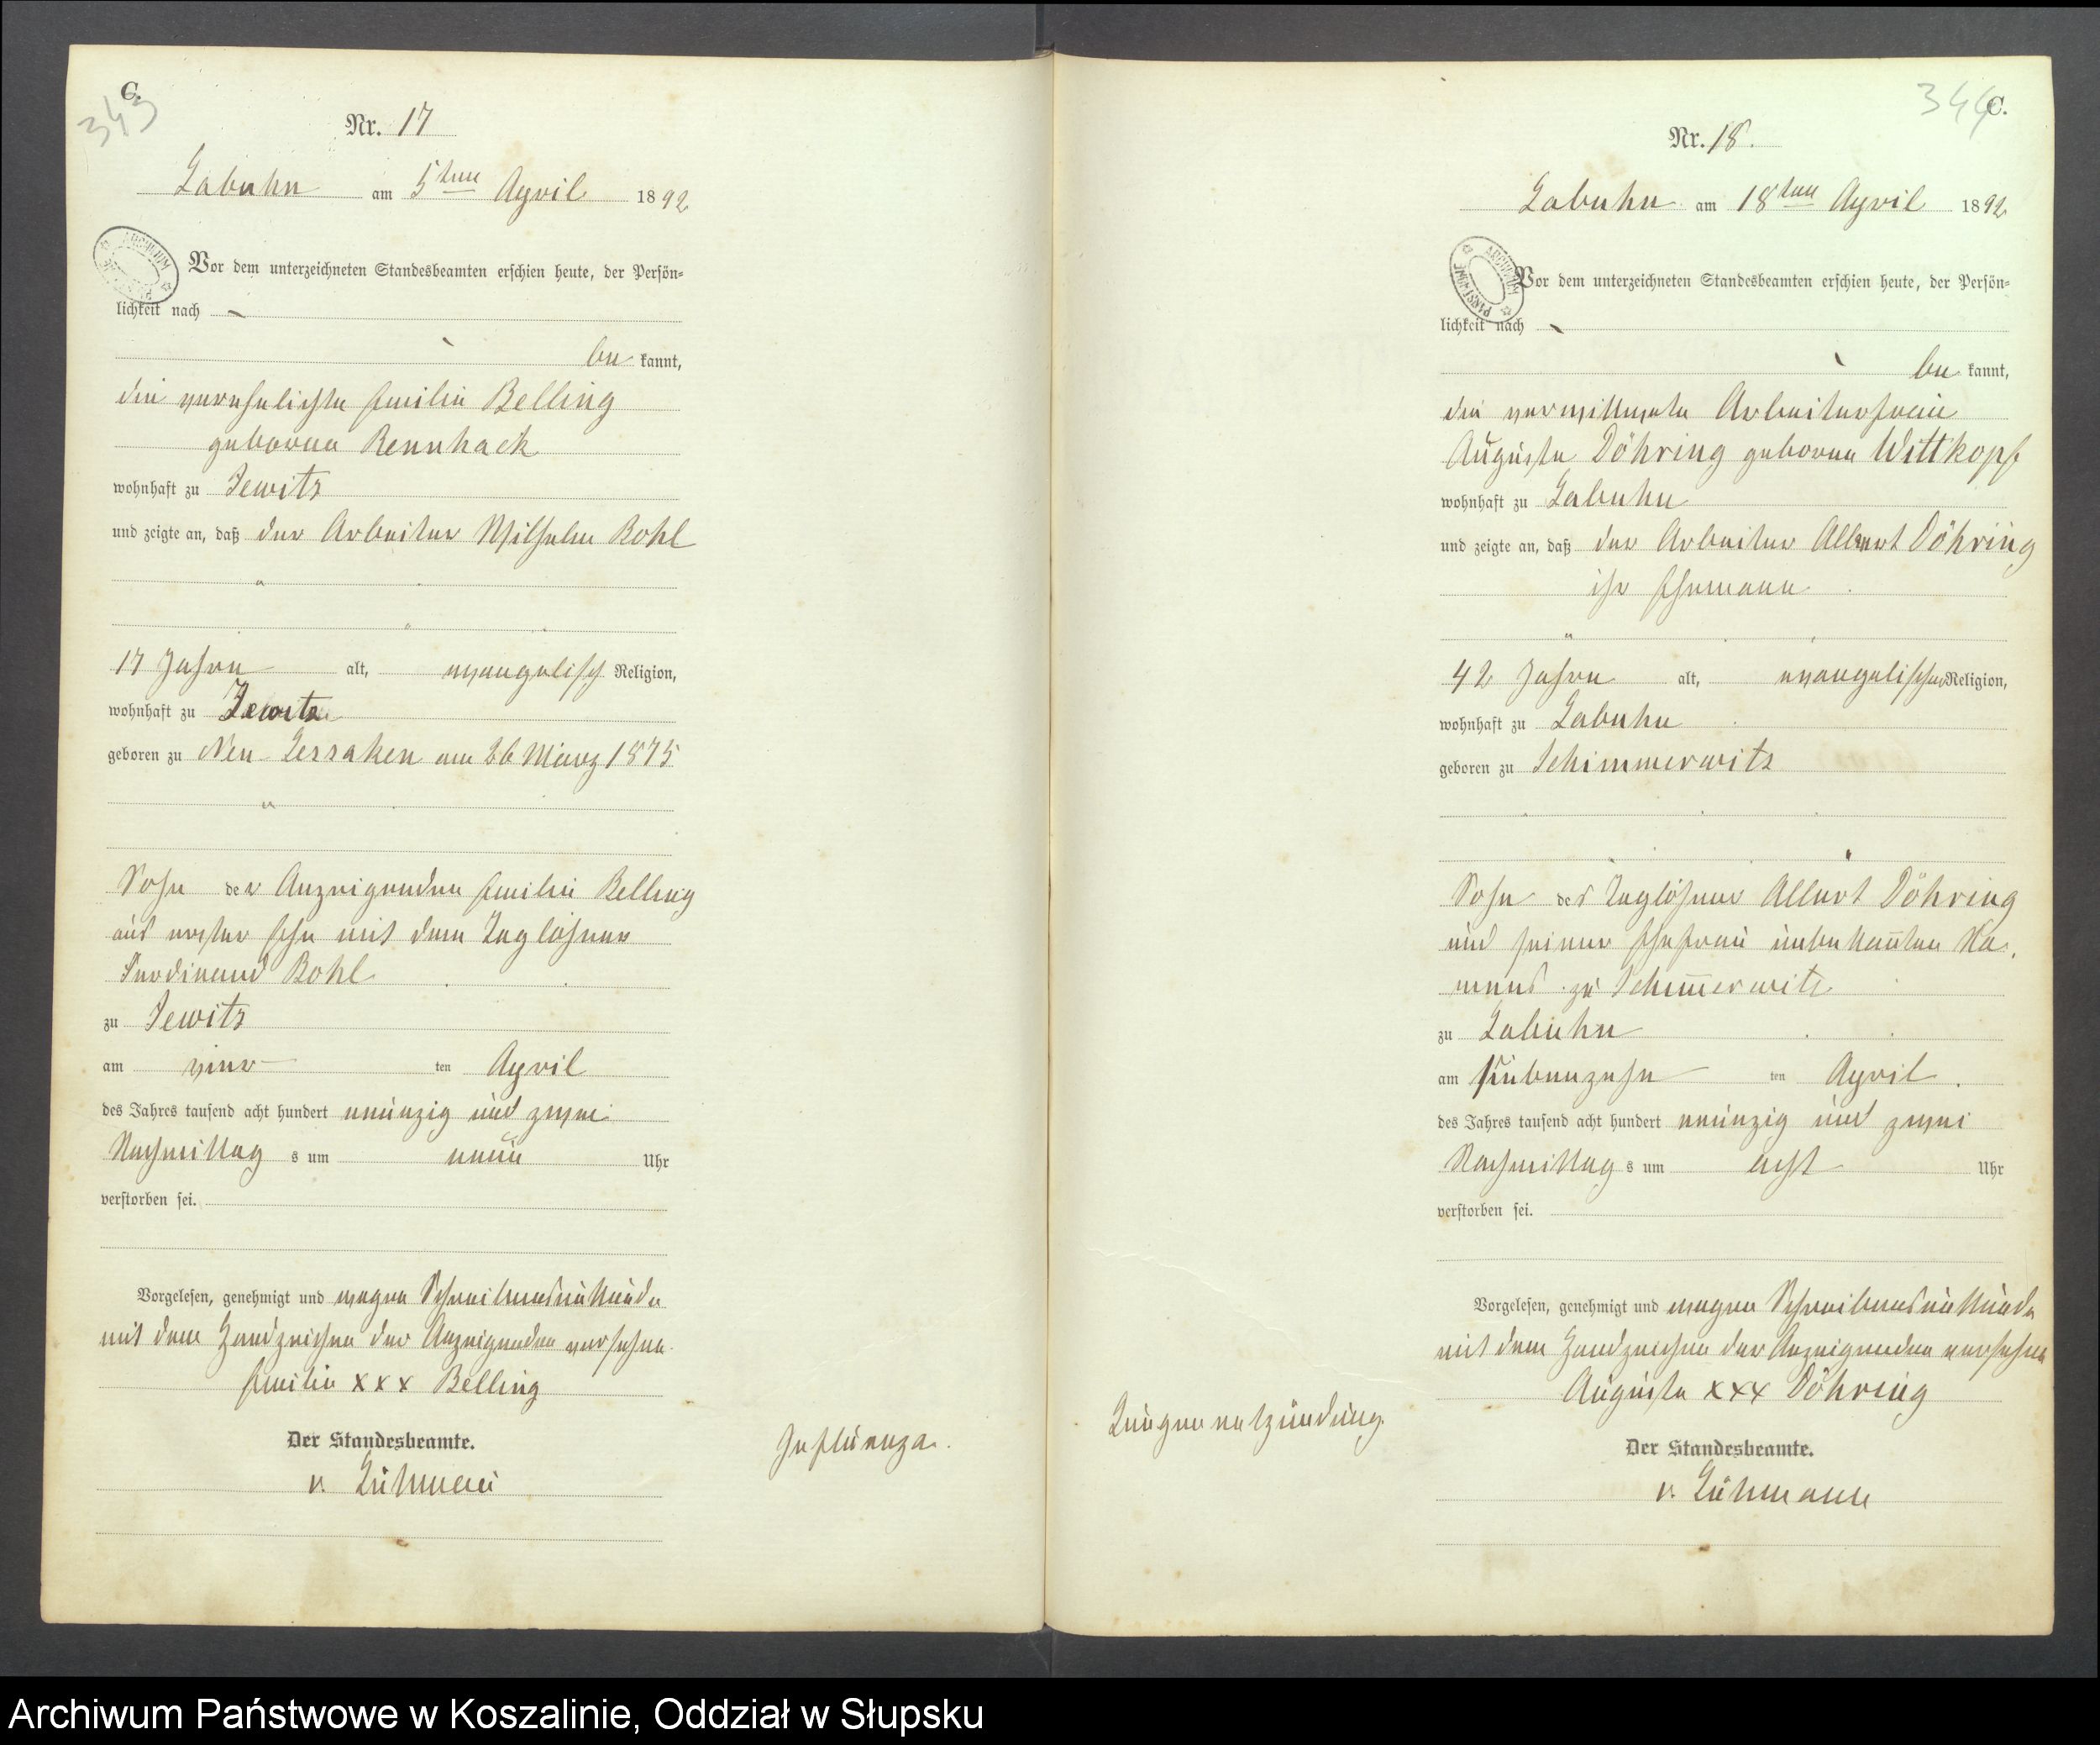 C.
343
Nr. 17
Labuhn am 5ten April 1892
Vor dem unterzeichneten Standesbeamten erschien heute, der Persön=
lichkeit nach
be kannt,
die verehelichte Emilie Belling
geborene Rennhack
wohnhaft zu Jewitz
und zeigte an, daß der Arbeiter Wilhelm Bohl
17 Jahre alt, evangelisch Religion,
wohnhaft zu Jewitz
geboren zu Neu Jessaken am 26 März 1875
Sohn der Anzeigenden Emilie Belling
aus erster Ehe mit dem Taglöhner
Ferdinand Bohl
zu Jewitz
am vier ten April
des Jahres tausend acht hundert neunzig und zwei
Nachmittag s um neun Uhr
verstorben sei.
Vorgelesen, genehmigt und wegen Schreibensunkunde
mit dem Handzeichen der Anzeigenden versehen.
Emilie xxx Belling
Der Standesbeamte.
v.
Influenza.
344
C.
Nr. 18.
Labuhn am 18ten April 1892
ARCHIWUM
Vor dem unterzeichneten Standesbeamten erschien heute, der Persön=
lichkeit nach
be kannt,
die verwittwete Arbeiterfrau
Auguste Döhring geborene Wittkopf
wohnhaft zu Labuhn
und zeigte an, daß der Arbeiter Albert Döhring
ihr Ehemann
42 Jahre alt, evangelischer Religion,
wohnhaft zu Labuhn
geboren zu Schimmerwitz
Sohn des Taglöhner Albert Döhring
und seiner Ehefrau unbekannten Na=
mens zu Schimerwitz
zu Labuhn
am siebenzehn ten April.
des Jahres tausend acht hundert neunzig und zwei
Nachmittag s um acht Uhr
verstorben sei.
Vorgelesen, genehmigt und wegen Schreibensunkunde
mit dem Handzeichen der Anzeigenden versehen
Auguste xxx Döhring
Der Standesbeamte.
v.
Lungenentzündung.
Archiwum Państwowe w Koszalinie, Oddział w Słupsku